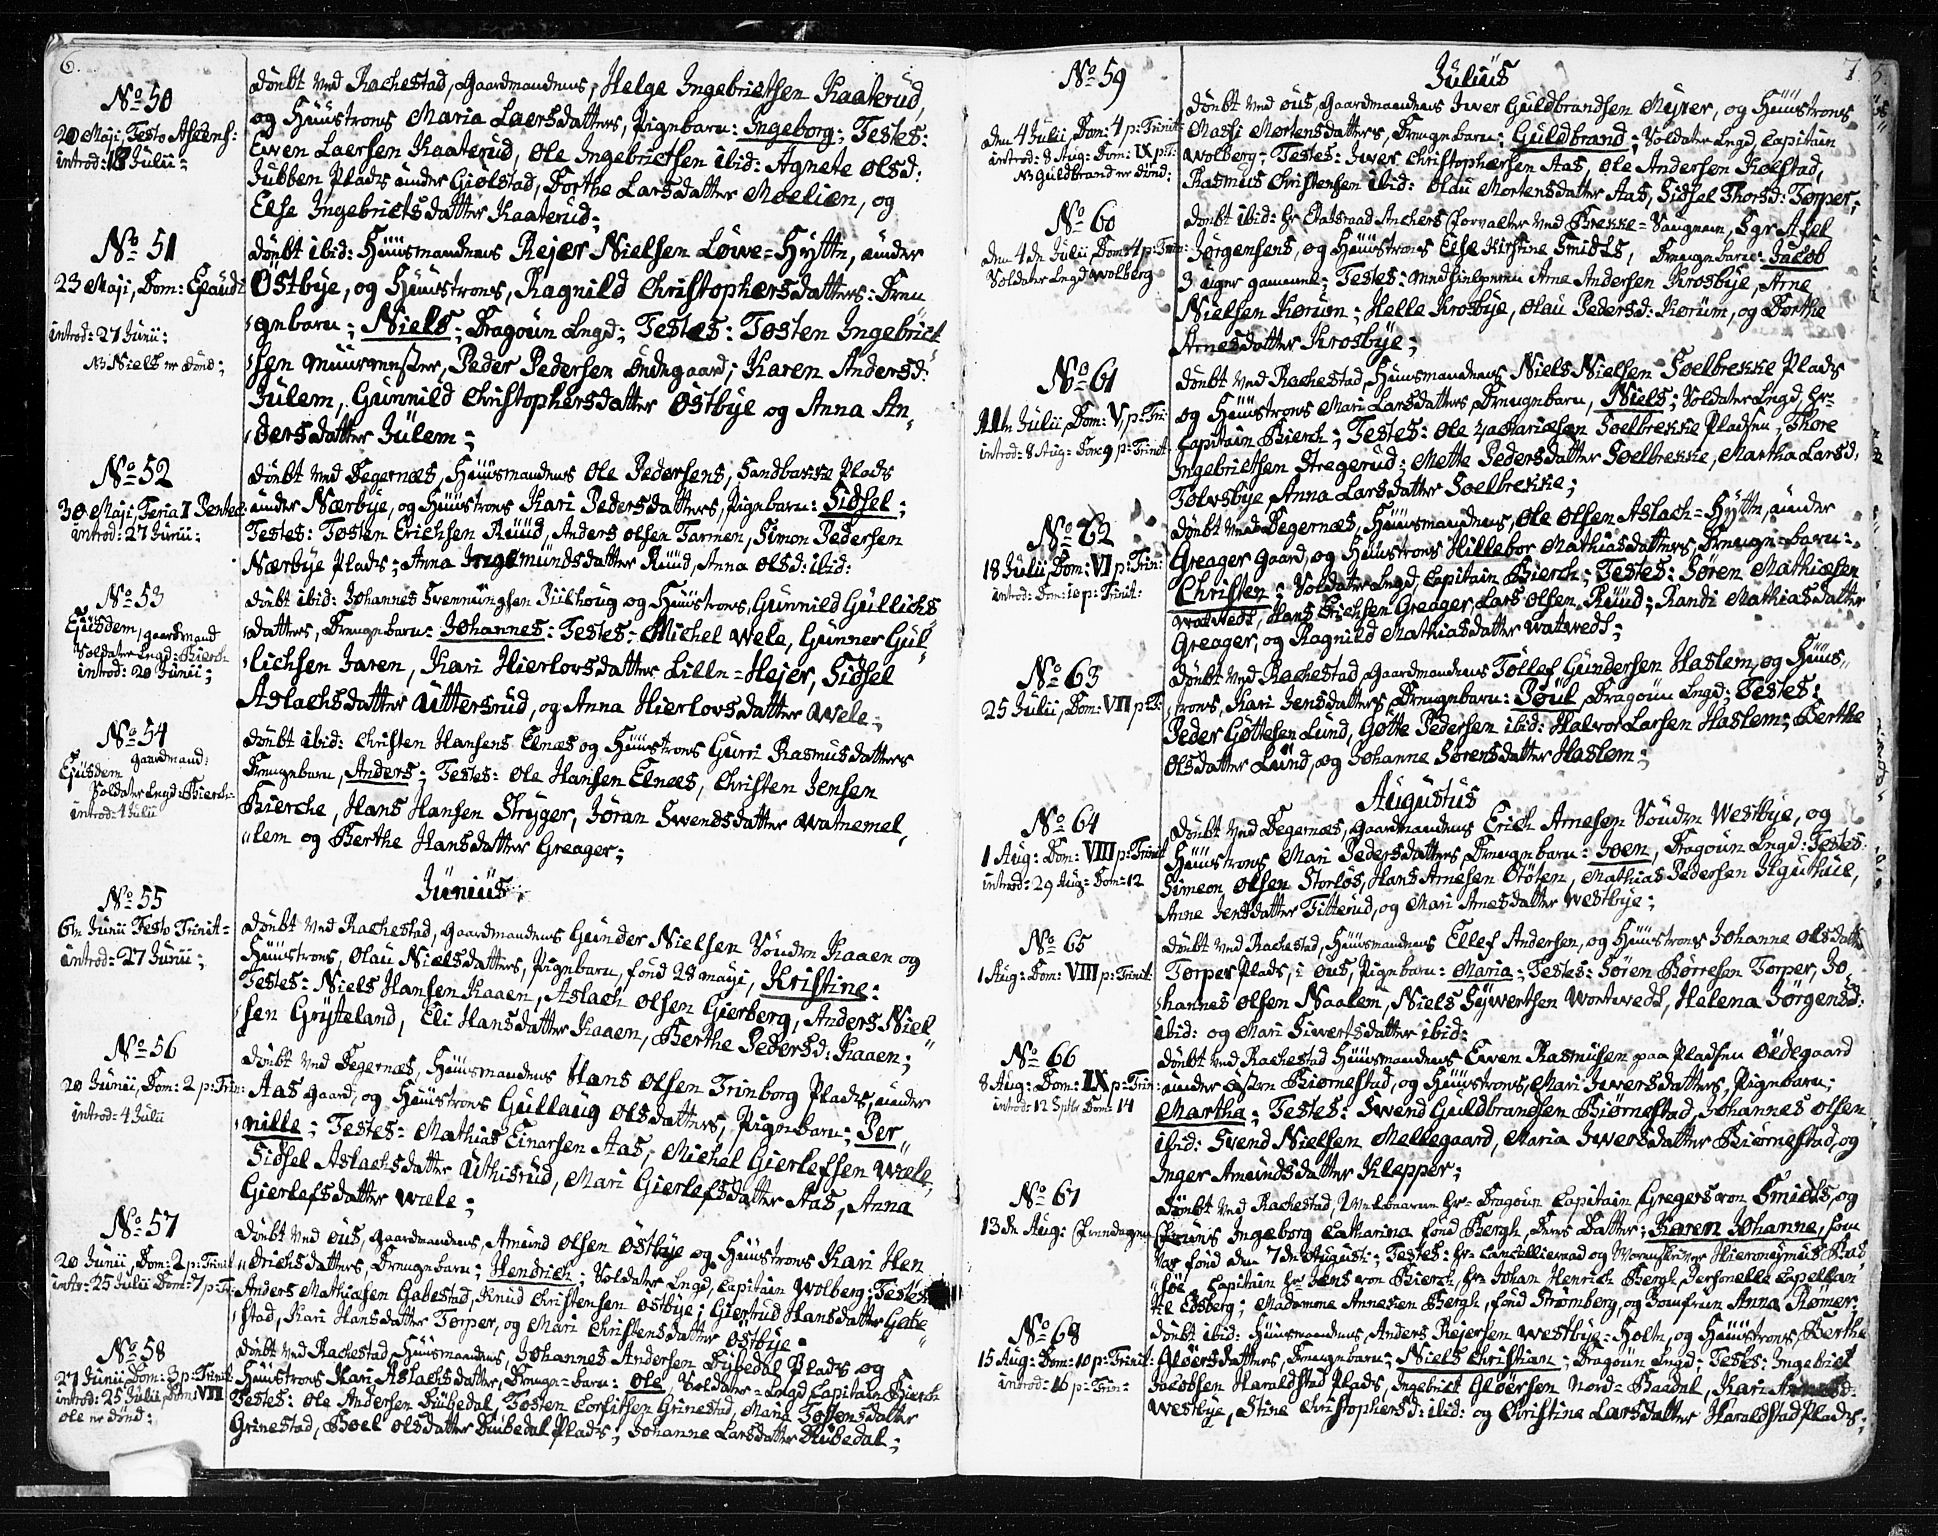 6.
No 50
20 Maji, Festo Ascens:
introd: 18 Julii;
Döubt ved Rachestad, Gaardmandens, Helge Ingebrietsen Kaaterud,
og Hüüstrons Maria Laersdatters, Pignbarn: Ingeborg; Testes:
Ewen Laersen Kaaterud, Ole Ingebrietsen ibid: Agnete Olsd:
Jubben Plads under Giölstad, Dorthe Larsdatter Moelien, og
Else Ingebrietsdatter Kaaterud;
No 51
23 Maji, Dom: Exaudi
introd: 27 Junii:
NB Niels er Död;
Döubt ibid: Hüüsmandens Rejer Nielsen Löwe-Hytte, under
Östbye, og Hüüstrons, Ragnild Christophersdatters: Dren
gnbarn; Niels; Dragoun Legd; Testes: Tosten Ingebriet
sen Muurmester, Peder Pedersen Endegaard; Karen Andersd:
Julem, Gunnild Christophersdatter Östbye og Anna An-
dersdatter Jülem;
No 52
30 Maji, Feria I Pentec:
introd: 27 Junii:
Döubt ved Degernæs, Hüüsmandens Ole Pedersens, Sandbakke Plads
under Nærbye, og Hüüstrons Kari Pedersdatters, Pignbarn: Sidsel;
Testes: Tosten Erichsen Rüüd, Anders Olsen Tarmen, Simon Pedersen
Nærbye Plads; Anna Ingemundsdatter Rüüd, Anna Olsd: ibid:
No 53
Ejüsdem, gaardmand
Soldater Legd: Bierch
introd: 20 Junii;
Döubt ibid: Johannes Svennüngsen Piilhoug og Hüüstrons, Gunnild Güllichs
datters, Drengnbarn: Johannes: Testes: Michel Wele, Gunner Gul-
lichsen Jaren, Kari Hierlovsdatter Lille-Hejer, Sidsel
Aslachsdatter Uttersrud, og Anna Hierlovsdatter Wele;
No 54
Ejusdem gaardmand:
Soldater Legd: Bierch
introd: 4 Julii
Döubt ibid: Christen Hansens Elnæs og Hüüstrons Gurri Rasmusdatters
Drengnbarn, Anders; Testes: Ole Hansen Elnæs, Christen Jensen
Bierche, Hans Hansen Stryger, Jöran Swendsdatter Watnemel,
lem og Berthe Hansdatter Greager;
Junius
No 55
6te Junii Festo Trinit:
introd: 27 Junii;
Döubt ved Rachestad, Gaardmandens Gunder Nielsen Sönden Kaaen og
Hüüstrons, Olau Nielsdatters, Pignbarn, föed 28 Maji, Kristine:
Testes: Niels Hansen Kaaen, Aslach Olsen Gierberg, Anders Niel
sen Grÿteland, Eli Hansdatter Kaaen, Berthe Pedersd: Kaaen;
No 56
20 Junii, Dom: 2 p: Trin:
introd: 4 Julii
Döubt ved Degernæs, Hüüsmandens Hans Olsen Trimborg Plads, under
Aas Gaard, og Hüüstrons Gullaug Olsdatters, Pignbarn; Per
nille; Testes: Mathias Einarsen Aas, Michel Gierlefsen Wele,
Sidsel Aslachsdatter Uthisrud, Mari Gierlefsdatter Aas, Anna
Gierlefsdatter Wæle;
No 57
20 Junii, Dom: 2 p: Trinit
intr: 25 Julii Dom: 7 p: Tr:
Döubt ved öus, Gaardmandens, Amund Olsen Östbye og Hüüstrons Kari Hen
drichsdatters, Drengnbarn; Hendrich; Soldater Legd, Capitain Wolberg; Testes
Anders Mathiasen Gabestad, Knud Christensen Östbye; Giertrud Hansdatter Gabe
stad, Kari Hansdatter Torper, og Mari Christensdatter Östbye:
No 58
27 Junii Dom: 3 p: Trinit:
introd: 25 Julii, Dom: VII
Ole er Död:
Döubt ved Rachestad, Hüüsmandens Johannes Andersen Dybedal Plads og
Hüüstrons Kari Aslachsdatter, Drengn-barn: Ole, Soldater-Legd Capitain Bierch
Testes: Ole Andersen Dübedal, Tosten Corfitsen Grinestad, Maria Tostensdatter
Grinestad, Boel Olsdatter Dübedal Plads; Johanne Larsdatter Dübedal;
7
Julius
No 59
den 4 Julii, Dom: 4 p: Trinit:
introd: 8 Aug: Dom: IX p: T:
NB Guldbrand er Död:
Döubt ved öus, Gaardmandens Iwer Guldbrandsen Myrer, og Hüüstrons
Massi Mortensdatters, Drengnbarn: Guldbrand; Soldater Legd, Capitain
Wolberg: Testes: Iwer Christophersen Aas, Ole Andersen Kolstad,
Rasmus Christensen ibid: Olau Mortensdatter Aas, Sidsel Thorsd: Torper;
No 60
den 4de Julii Dom: 4 p: Trin:
Soldater Legd Wolberg
Döubt ibid: Hr Etatsraad Anchers Forvalter ved Brekke-Saugene, Sgr Axel
Jörgensens, og Hüüstrons Else Kirstine Smidts, Drengnbarn: Jacob
3 uger gammel; Testes: Medhielperen Arne Andersen Krosbye, Arne
Nielsen Körum; Helle Krosbye, Olau Pedersd: Körüm, og Dorthe
Arnesdatter Krosbye;
No 61
11te Julii, Dom: V, p: Tri:
introd: 8 Aug: Dom: 9 p: Trinit
Döubt ved Rachestad, Hüüsmandens Niels Nielsen Soelbrekke Plads
og Hüüstrons Mari Larsdatters Drengnbarn, Niels; Soldater Legd, Hr
Capitain Bierch; Testes: Ole Zachariæsen Soelbrekke Pladsen, Thore
Ingebrietsen Stregerud; Mette Pedersdatter Soelbrekke, Martha Larsd,
Tolvsbye Anna Larsdatter Soelbrekke;
No 62
18 Julii, Dom: VI p: Trin:
introd: Dom: 10 p: Trinit:
Döubt ved Degernæs, Hüüsmandens, Ole Olsen Aslach-Hytte, under
Greager Gaard, og Hüüstrons Hillebor Mathiasdatters, Drengn-barn:
Christen; Soldater Legd, Capitain Bierch; Testes: Sören Mathiasen
Watvedt, Hans Erichsen Greager, Lars Olsen Rüüd; Randi Mathiasdatter
Greager, og Ragnild Mathiasdatter Watwedt;
No 63
25 Julii, Dom: VII p: T:
Döubt ved Rachestad, Gaardmandens Tollef Gundersen Haslem, og Hüüs-
trons, Kari Jensdatters, Drengnbarn: Poul, Dragoun Legd; Testes:
Peder Göttesen Lund, Götte Pedersen ibid: Halvor Larsen Haslem; Berthe
Olsdatter Lund, og Johanne Sörensdatter Haslem;
Augustus
No 64
1 Aug: Dom: VIII p: Trinit
introd: 29 Aug: Dom: 12
Döubt ved Degernæs, Gaardmandens Erich Arnesen Sönden Westbye, og
Hüüstrons Mari Pedersdatters Drengnbarn: Joen, Dragoun Legd: Testes:
Simeon Olsen Storlös, Hans Arnesen Otöten, Mathias Pedersen Skguthuis,
Anne Jensdatter Titterud, og Mari Arnesdatter Westbye;
No 65
1 Aug: Dom: VIII p: Trinit:
Döubt ved Rachestad, Hüüsmandens Ellef Andersen, og Hüüstrons Johanne Olsdatter
Torper Plads, i öus, Pignbarn: Maria; Testes: Sören Börresen Torper, Jo
hannes Olsen Naalem, Niels Sywertsen Wortwedt, Helena Jörgensd:
ibid: og Mari Siwertsdatter ibid:
No 66
8 Aug: Dom: IX p: Trin:
introd: 12 Sptbr Dom: 14
Döubt ved Rachestad Hüüsmandens Ewen Rasmusen paa Pladsen Ödegaard
under östen Biörnestad, og Hüüstrons, Mari Iwersdatters, Pignbarn;
Martha; Testes: Swend Guldbrandsen Biörnestad, Johannes Olsen
ibid: Svend Nielsen Mellegaard, Maria Iwersdatter Biörnestad, og
Inger Amundsdatter Klepper;
No 67
13de Aug: Fremdagen
Döubt ved Rachestad, Velbaarne Hr Dragoun Capitain Gregers von Smidts, og
Frues Ingeborg Catharina föed Bergh, Deres Datter; Karen Johanne, som
var föed den 7de August:; Testes: Hr Cancellieraad og Hieronejmus Bas
söe, Capitain Hr Jens von Bierch, Hr Johan Henrich Bergh, Personelle Capellan
til Edsberg; Madamme Annesen Bergh, föed Strömberg, og Jomfruen Anna Römer:
No 68
15 Aug: Dom: 10 p: Trinit:
introd: 16 p: Trin:
Döubt ibid: Hüüsmandens, Anders Rejersen Westbye-Holte, og Hüüstrons, Berthe
Glöersdatters, Drengnbarn; Niels Christian; Dragoun Legd: Testes: Ingebriet
Jacobsen Haraldstad Plads, Ingebriet Glöersen Nord-Baadal, Kari
Westbye, Stine Christophersd: ibid: og Christine Larsdatter Haraldstad Plads;